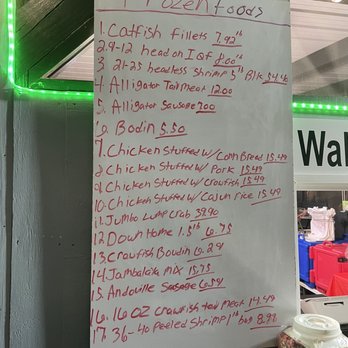 Frozen foods
1. Catfish fillets 7.92 lb
2. 9-12 head on IQF 8.00 lb
3. 21-25 headless shrimp 5 lb Blk
4. Alligator Tail meat 12.00
5. Alligator Sausage 7.00
6. Bodin 5.50
7. Chicken Stuffed w/ Corn Bread 15.49
8. Chicken Stuffed w/ Pork 15.49
9. Chicken Stuffed w/ Crawfish 15.49
10. Chicken Stuffed w/ Cajun rice 15.49
11. Jumbo Lump Crab 39.90
12. Down Home 1.5 lb 6.75
13. Crawfish Boudin 6.29
14. Jambalaia mix 15.75
15. Andoville Sausage 6.59
16. 16 oz crawfish tail meat 14.49
17. 36-40 Peeled Shrimp 1 lb bag 8.99
Wal